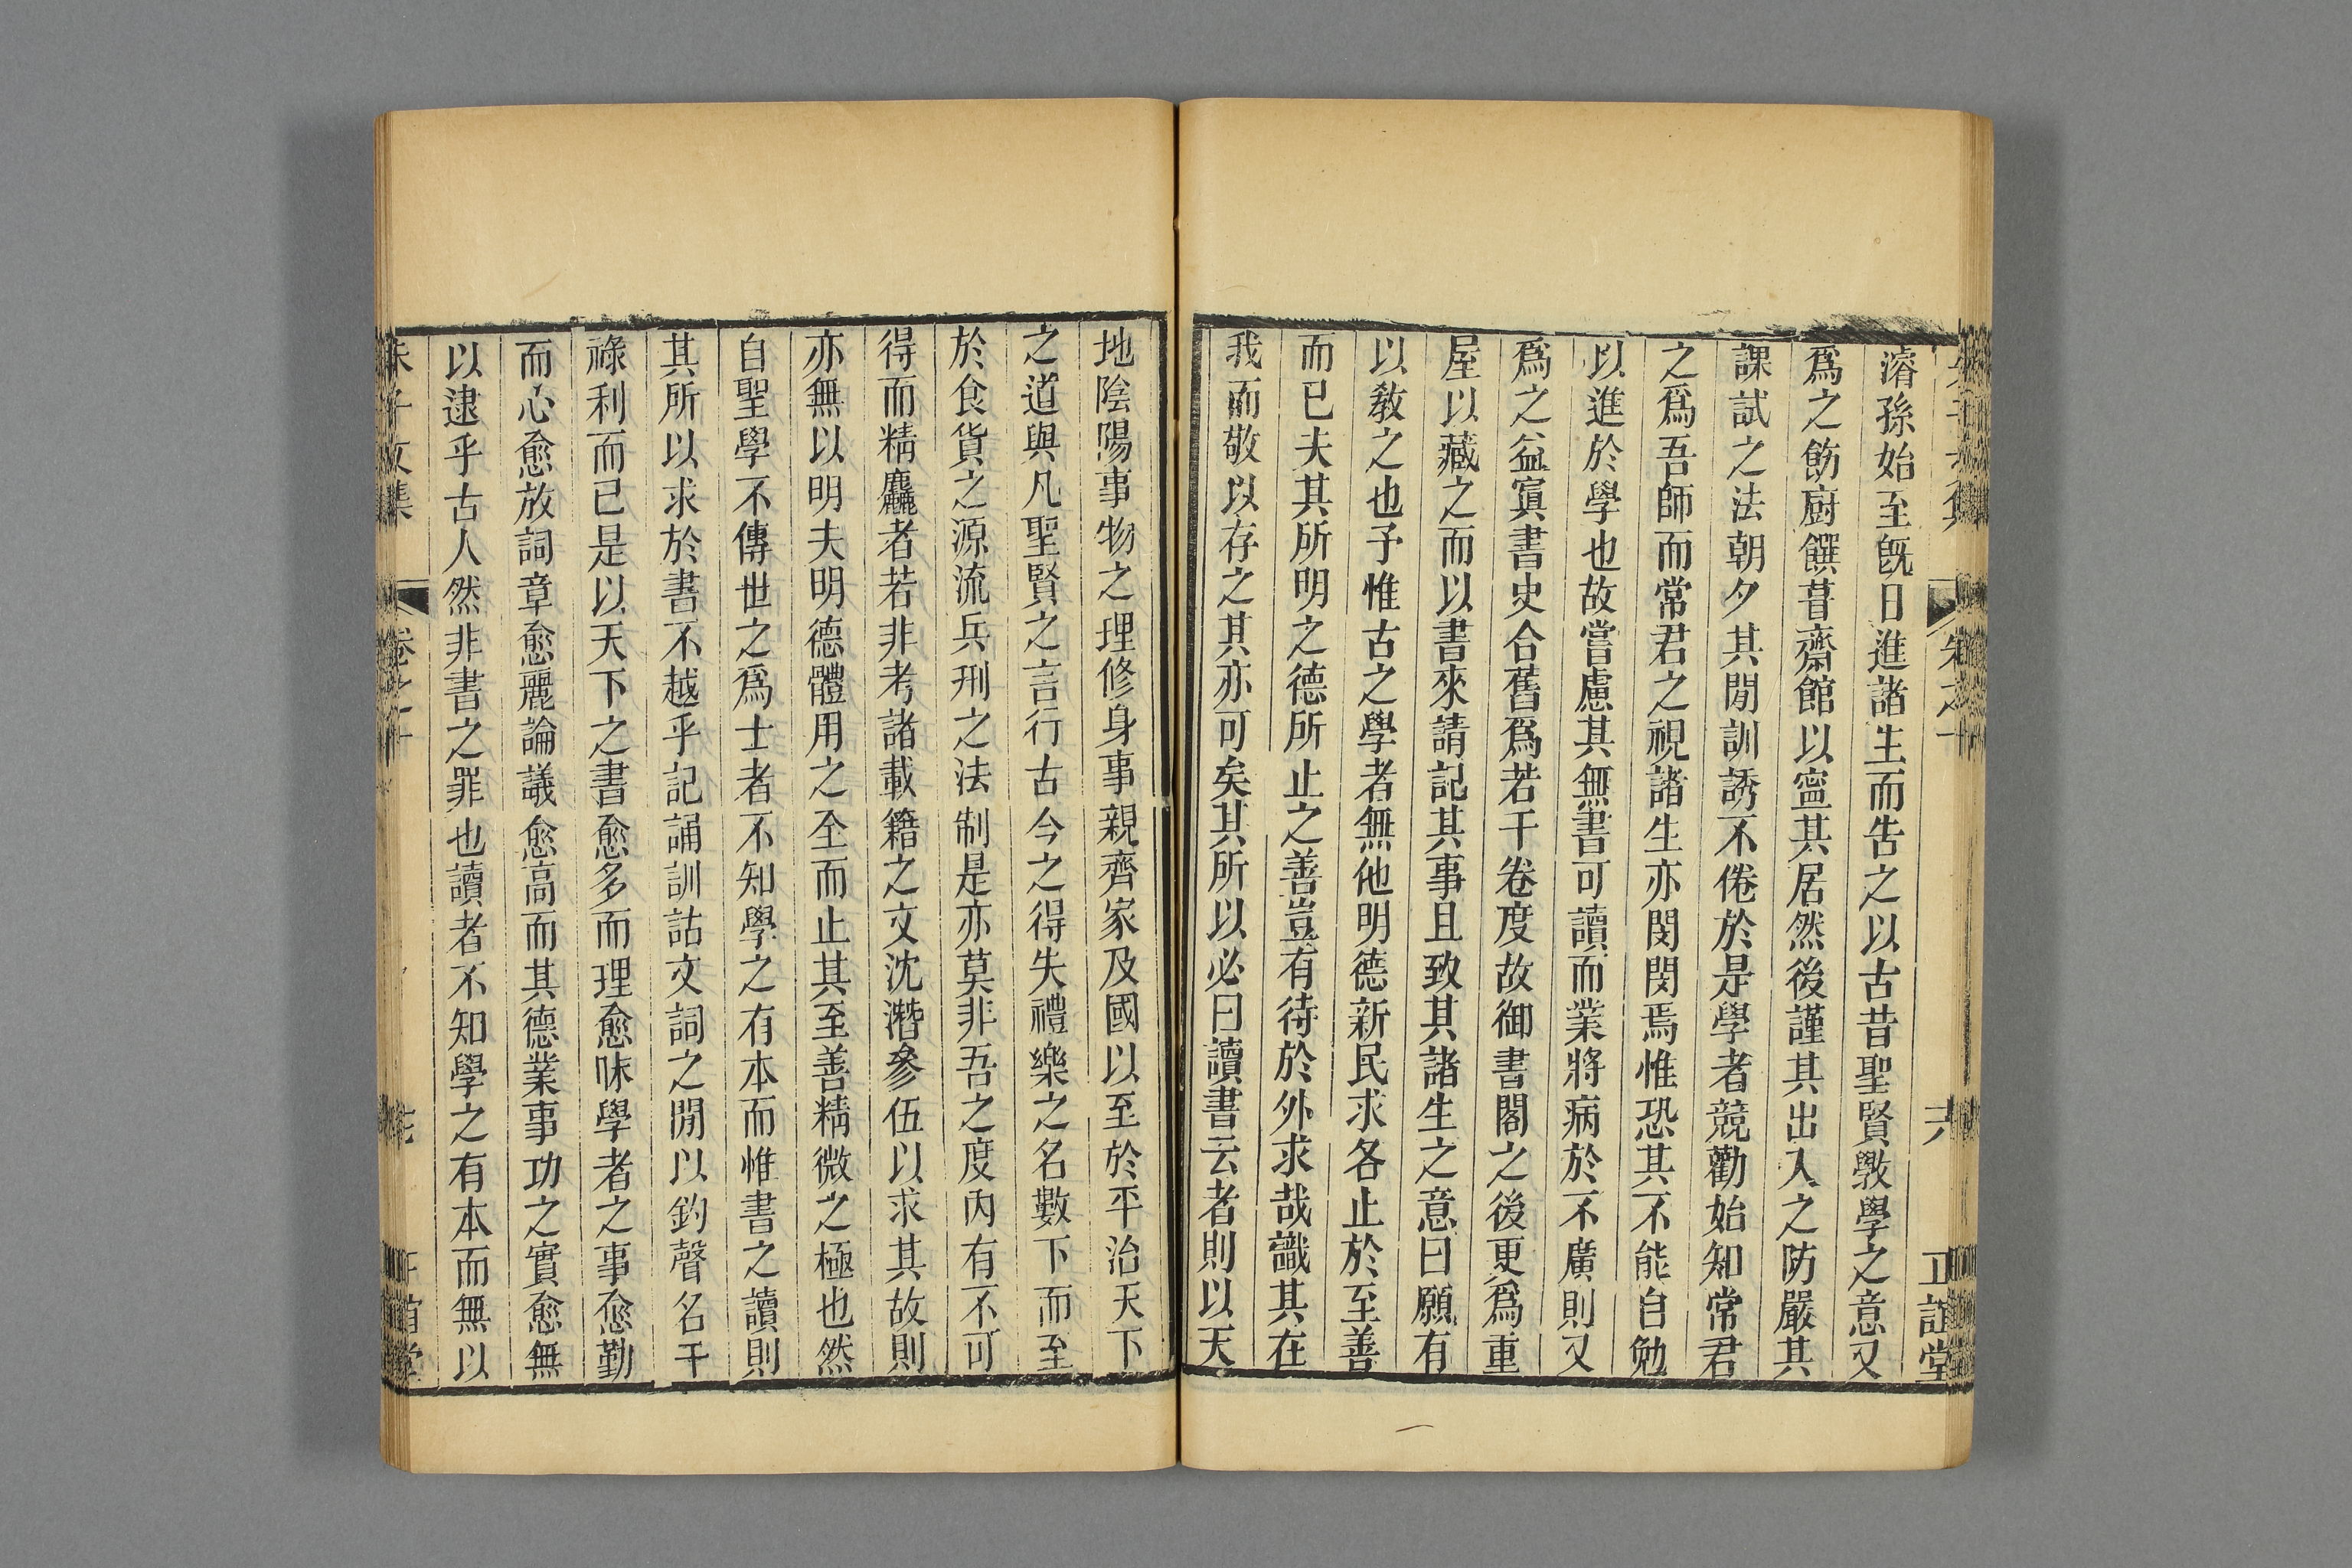 濬孫始至旣日進諸生而告之以古昔聖賢敎學之意又
爲之飭廚饌葺齋館以寧其居然後謹其出入之防嚴其
課試之法朝夕其閒訓誘不倦於是學者競勸始知常君
之爲吾師而常君之視諸生亦閔閔焉惟恐其不能自勉
以進於學也故嘗慮其無書可讀而業將病於不廣則又
爲之益寘書史合舊爲若干卷度故御書閣之後更爲重
屋以藏之而以書來請記其事且致其諸生之意曰願有
以敎之也予惟古之學者無他明德新民求各止於至善
而已夫其所明之德所止之善豈有待於外求哉識其在
我而敬以存之其亦可矣其所以必曰讀書云者則以天
地陰陽事物之理修身事親齊家及國以至於平治天下
之道與凡聖賢之言行古今之得失禮樂之名數下而至
於食貨之源流兵刑之法制是亦莫非吾之度內有不可
得而精麤者若非考諸載籍之文沈潛參伍以求其故則
亦無以明夫明德體用之全而止其至善精微之極也然
自聖學不傳世之爲士者不知學之有本而惟書之讀則
其所以求於書不越乎記誦訓詁文詞之閒以釣聲名干
祿利而已是以天下之書愈多而理愈昧學者之事愈勤
而心愈放詞章愈麗論議愈高而其德業事功之實愈無
以逮乎古人然非書之罪也讀者不知學之有本而無以
朱子文集 卷之十